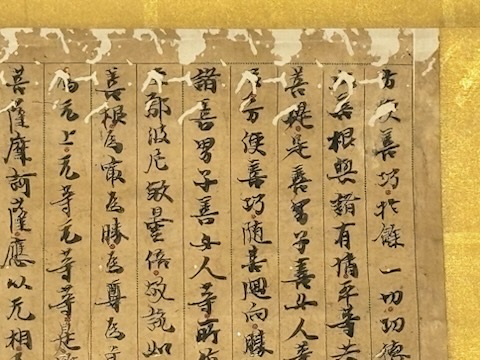 方便善巧於餘一切功德
善根與諸有情平等共
菩提是善男子善女人等
方便善巧隨喜迴向勝
諸善男子善女人等所
鄔波尼煞曇倍故說如
善根為最為勝為尊為
為无上无等无等等是
菩薩摩訶薩應以无相